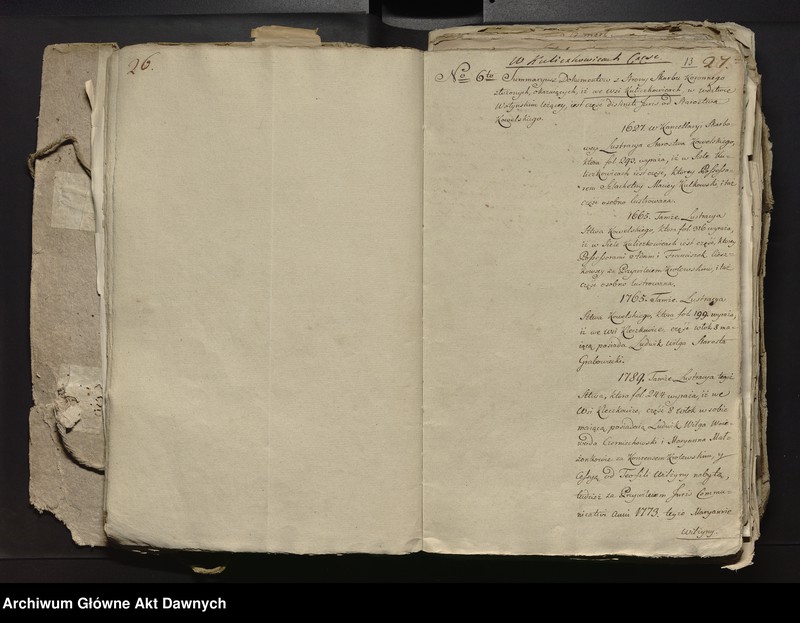 26.
W Kuliczkowicach Częsc 13 27.
No 6to Summaryusz Dokumentów z Strony Skarbu Koronnego
złożonych, okazuiących, iż we wsi Kuliczkowicach w
Wołyńskim leżącey, iest część distincti Juris od Starostwa
Kowelskiego.
1627. w Kancellaryi Skarbo-
wey Lustracya Starostwa Kowelskiego,
która fol. 293 wyraża, iż w Siele Ku-
liczkowicach iest część, ktorey Possesso-
rem Szlachetny Maciey Kutkowski, i taż
część osobno lustrowana.
1665. Tamże Lustracya
Sttwa Kowelskiego, która fol. 316 wyraża,
iż w Siele Kuliczkowicach iest część, ktorey
Possessorami Adam i Franciszek
za Przywileiem Krolewskim, i taż
część osobno lustrowana.
1765. Tamże Lustracya
Sttwa Kowelskiego, która fol. 199 wyraża,
iż we Wsi Kleczkowice, część włok 8 ma-
iącą posiada Ludwik Wilga Starosta
Grabowiecki.
1789. Tamże Lustracya tegoż
Sttwa, która fol. 244 wyraża, iż we
Wsi Kleczkowice, części 8 włok w sobie
maiącą posiadaią Ludwik Wilga Woie-
woda Czerniechowski i Maryanna Mał-
żonkowie za Konsensem Krolewskim, y
Cessyą od Teofili Wilżyny nabytą,
tudzież za Przywileiem Juris Commu-
nicativi Anni 1773. teyże Maryannie
Wilżyny.
Archiwum Główne Akt Dawnych